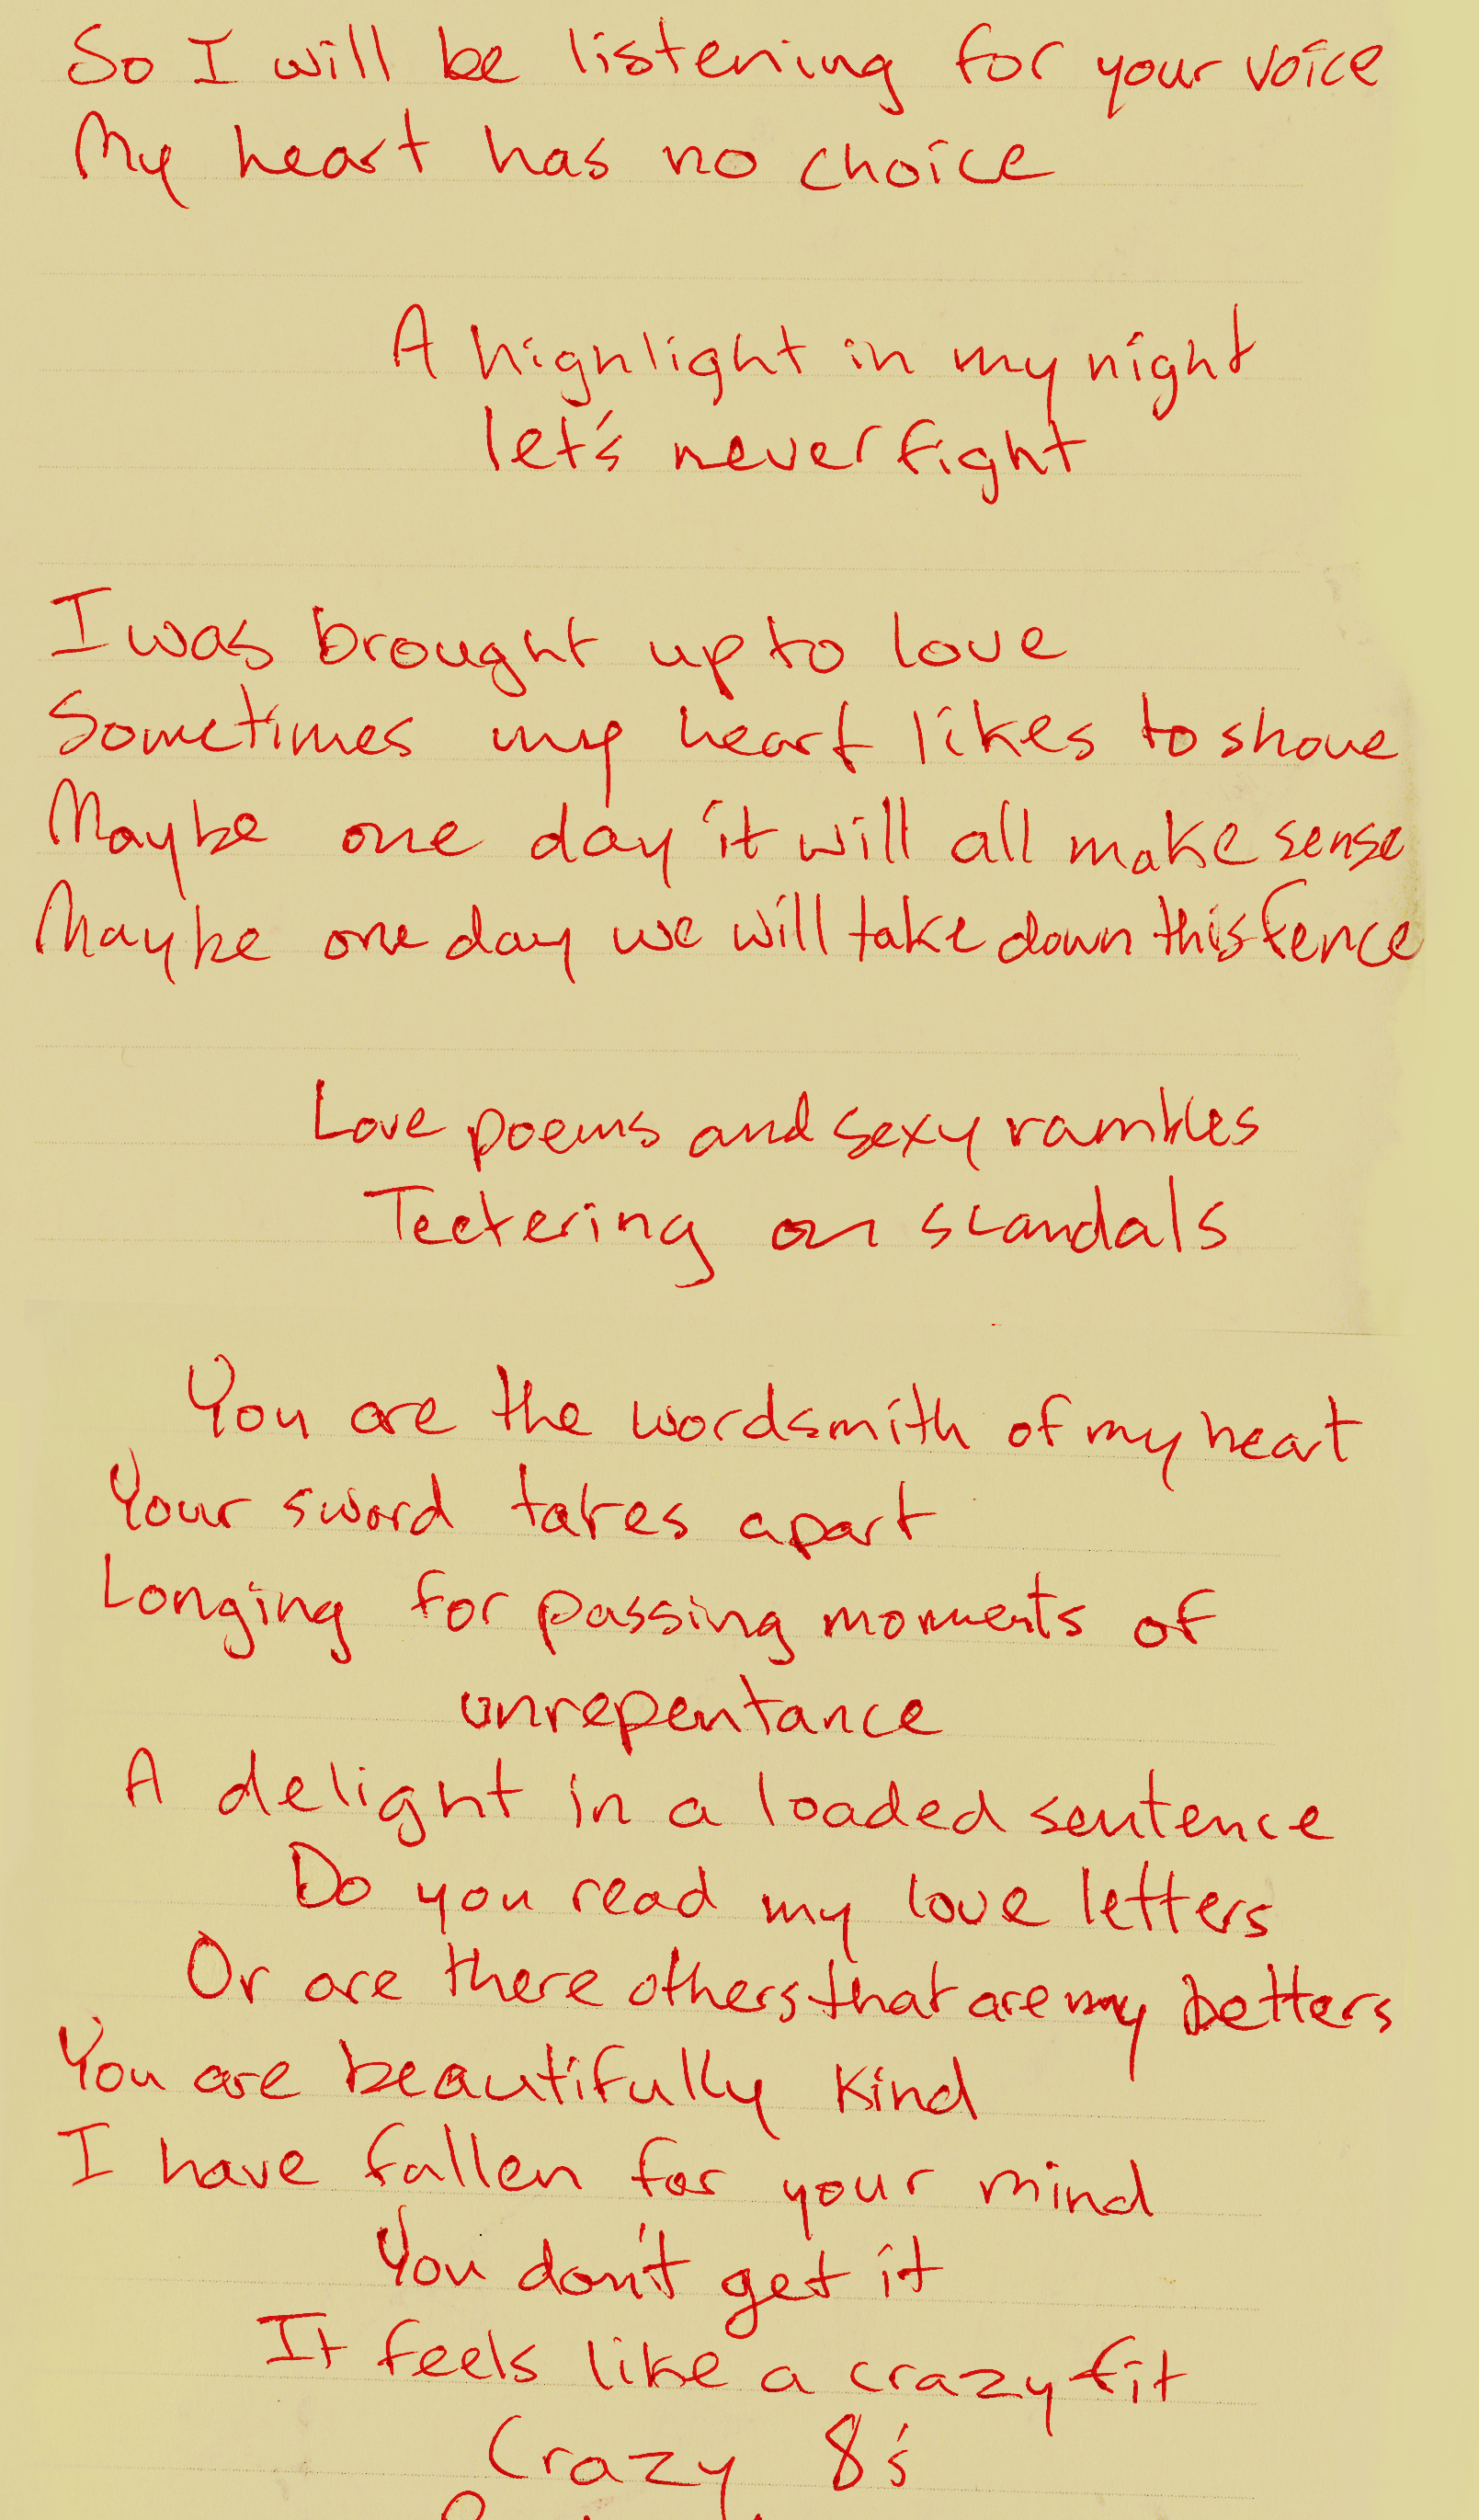 So I will be listening for your voice
My heart has no choice
A highlight in my night
let's never fight
I was brought up to love
Sometimes my heart likes to shove
Maybe one day it will all make sense
Maybe one day we will take down this fence
Love poems and sexy rambles
Teetering on scandals
You are the wordsmith of my heart
Your sword takes apart
Longing for passing moments of
unrepentance
A delight in a loaded sentence
Do you read my love letters
Or are there others that are my betters
You are beautifully kind
I have fallen for your mind
You don't get it
It feels like a crazy fit
Crazy 8's